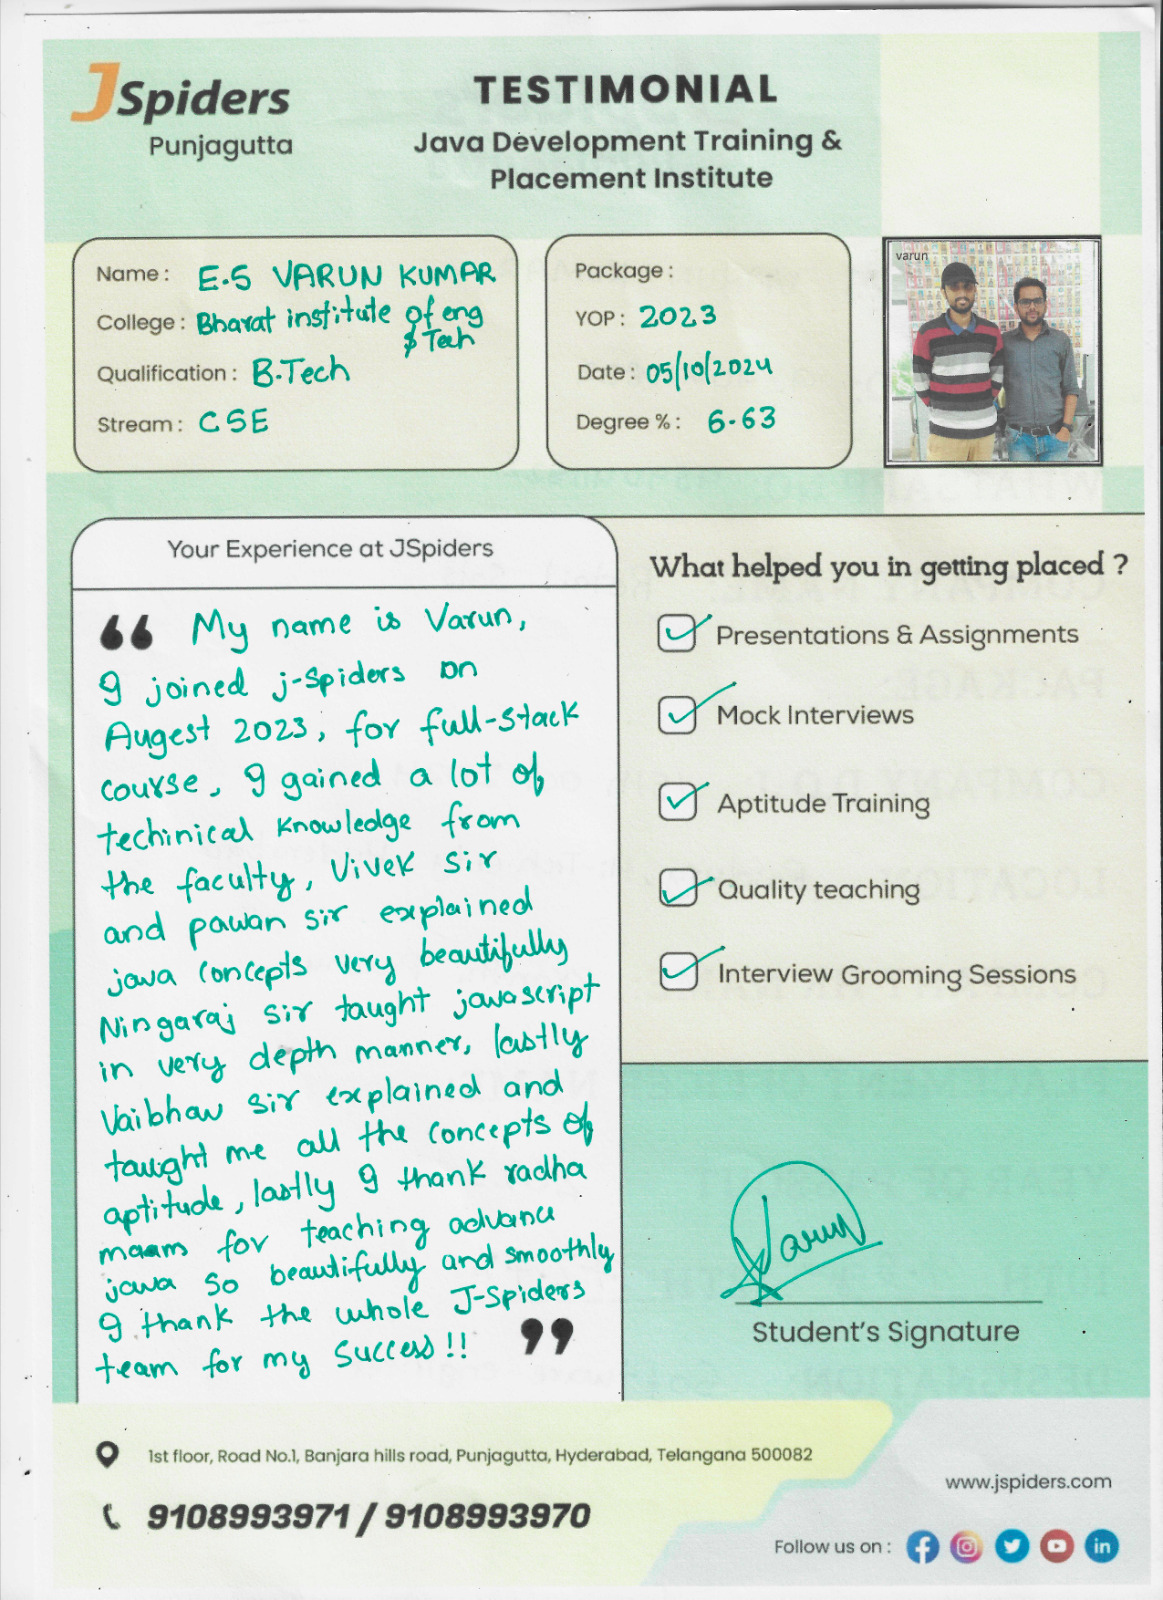 JSpiders
Punjagutta
TESTIMONIAL
Java Development Training &
Placement Institute
Name : E.S VARUN KUMAR
College : Bharat institute of eng
& Tech
Qualification : B.Tech
Stream : CSE
Package :
YOP : 2023
Date : 05/10/2024
Degree % : 6.63
varun
Your Experience at JSpiders
“ My name is Varun,
I joined j-Spiders on
Augest 2023, for full-stack
course, I gained a lot of
techinical knowledge from
the faculty, Vivek Sir
and pawan sir explained
java concepts very beautifully
Ningaraj sir taught javascript
in very depth manner, lastly
Vaibhav sir explained and
taught me all the concepts of
aptitude, lastly I thank radha
maam for teaching advance
java so beautifully and smoothly
I thank the whole J-Spiders
team for my success!! ”
What helped you in getting placed ?
Presentations & Assignments
Mock Interviews
Aptitude Training
Quality teaching
Interview Grooming Sessions
Varun
Student's Signature
1st floor, Road No.1, Banjara hills road, Punjagutta, Hyderabad, Telangana 500082
9108993971 / 9108993970
www.jspiders.com
Follow us on :